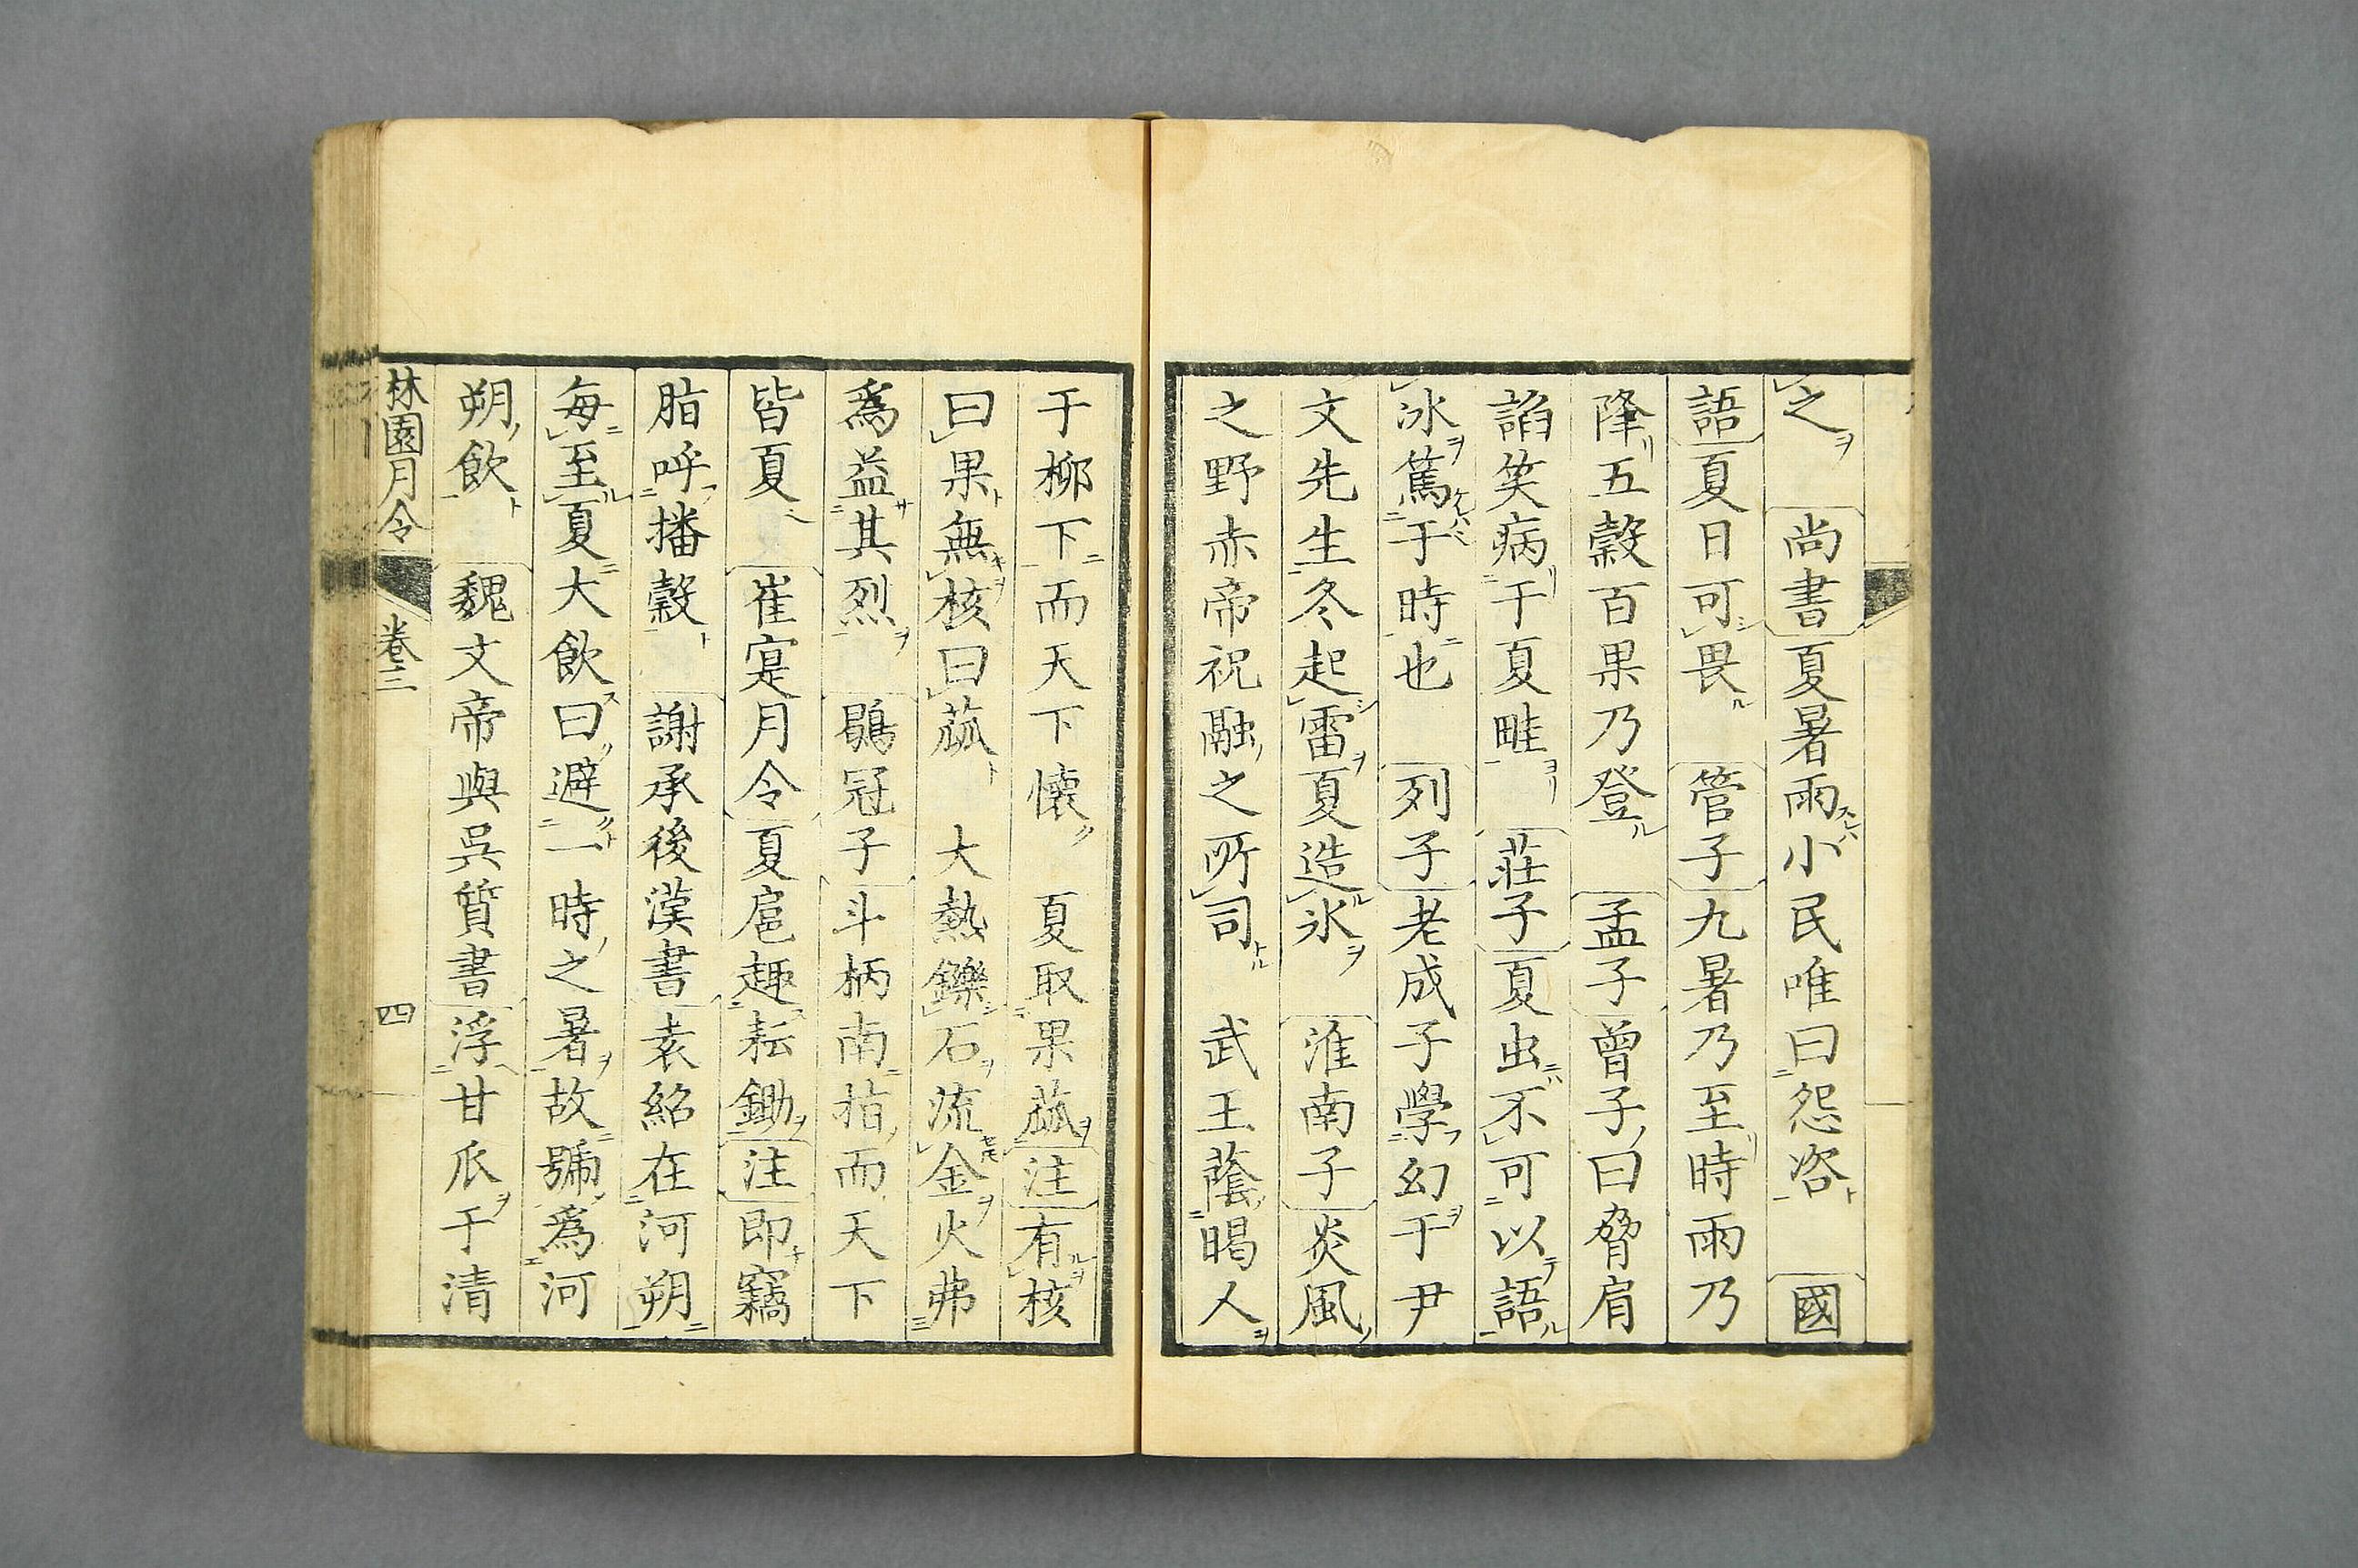 之尚書夏暑雨小民唯曰怨咨國
語夏日可畏管子九暑乃至時雨乃
降五穀百果乃登孟子曾子曰脅肩
諂笑病于夏畦莊子夏虫不可以語
冰篤于時也列子老成子學幻于尹
文先生冬起雷夏造氷淮南子炎風
之野赤帝祝融之所司武王蔭暍人
于柳下而天下懐夏取果蓏注有核
曰果無核曰蓏大熱鑠石流金火弗
爲益其烈鶡冠子斗柄南指而天下
皆夏崔寔月令夏扈趣耘鋤注即竊
脂呼播穀謝承後漢書袁紹在河朔
每至夏大飲曰避一時之暑故號爲河
朔飲魏文帝與吳質書浮甘瓜于清
林園月令 卷三 四